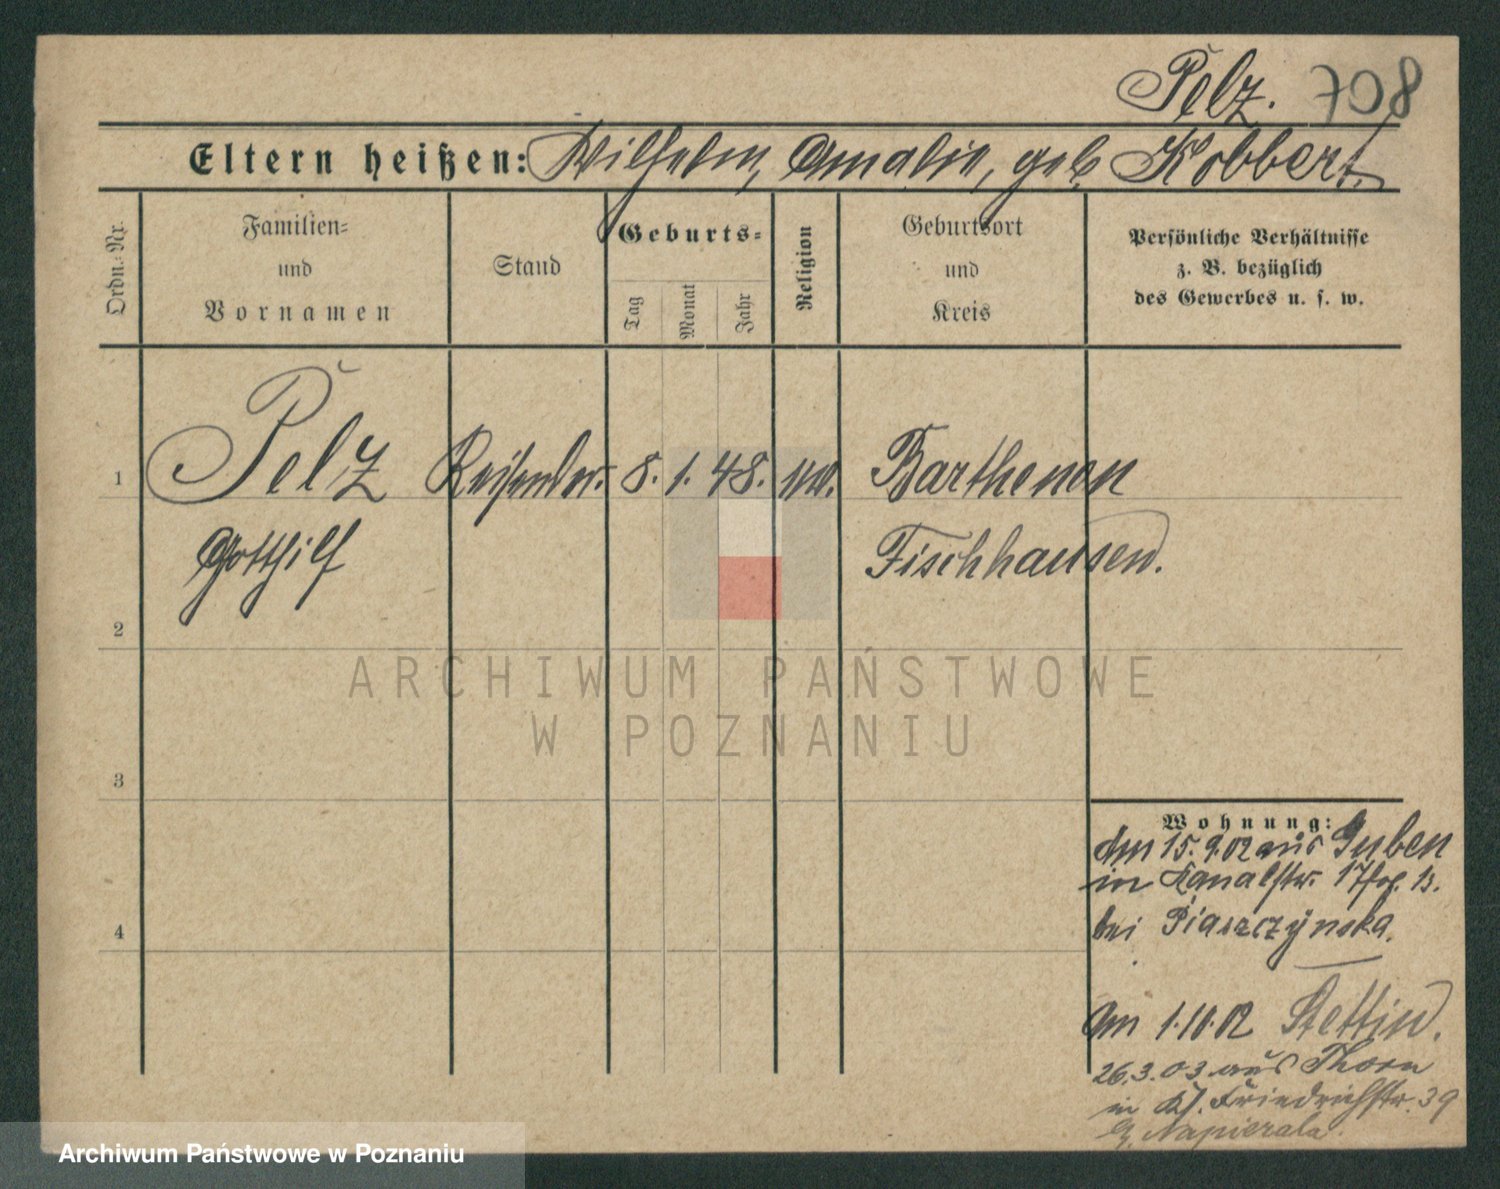 Pelz. 708
Eltern heißen: Wilhelm, Amalie, geb. Kobbert.
Ordn.-Nr.
Familien-
und
Vornamen
Stand
Geburts-
Tag
Monat
Jahr
Religion
Geburtsort
und
Kreis
Persönliche Verhältnisse
z. B. bezüglich
des Gewerbes u. s. w.
1 Pelz Reisender. 8. 1. 48. Barthenen
Gotthilf Fischhausen.
2
3
4
ARCHIWUM PAŃSTWOWE
W POZNANIU
Wohnung:
Am 15.9.02 aus Guben
in Kanalstr. 17
bei Piaszczynska.
Am 1.10.02 Stettin.
26.3.03 aus Thorn
in Friedrichstr. 39
Napierala.
Archiwum Państwowe w Poznaniu